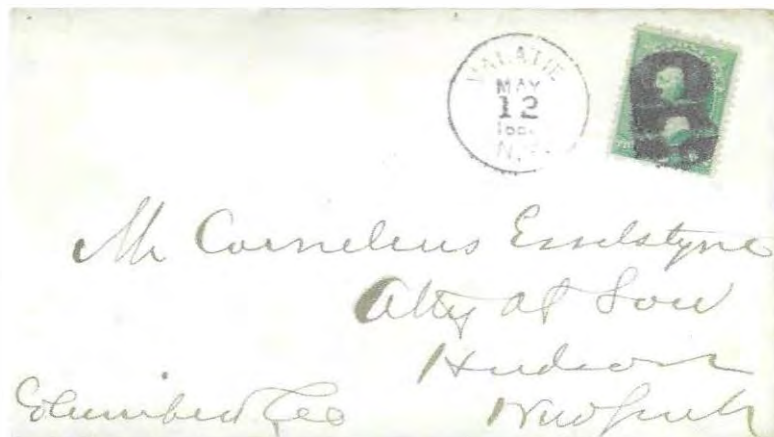 VALATIE
MAY
12
N.Y.
Mr Cornelius Esselstyne
Atty at Law
Hudson
Columbia Co New York